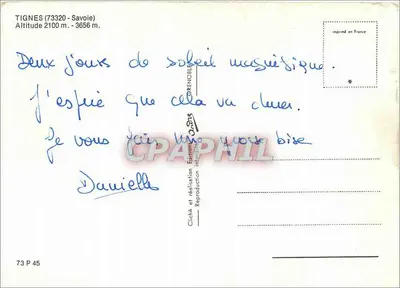 TIGNES (73320 - Savoie)
Altitude 2100 m. - 3656 m.
imprimé en France
Deux jours de soleil magnifique.
J'espère que cela va durer.
Je vous fais une grosse bise
Danielle
CPAPHIL
GRENOBLE
Cliché et réalisation
Reproduction
73 P 45